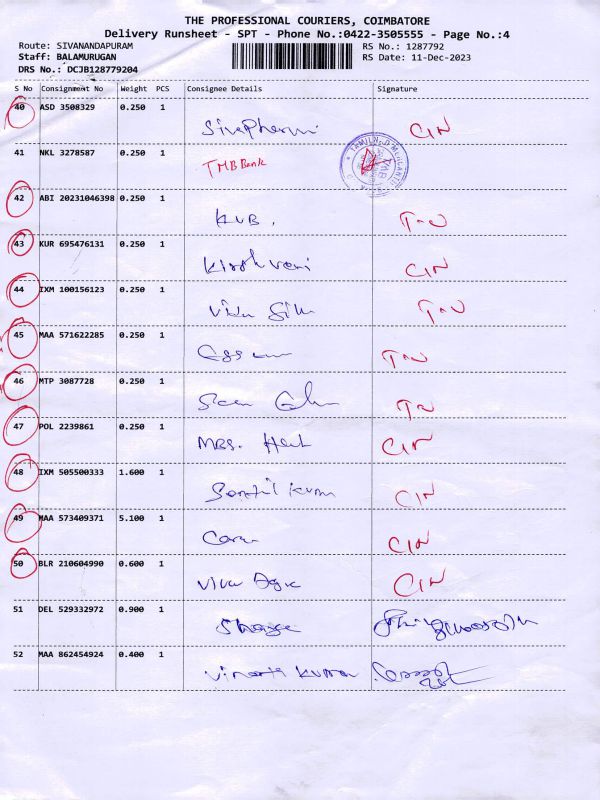 THE PROFESSIONAL COURIERS, COIMBATORE
Delivery Runsheet - SPT - Phone No.:0422-3505555 - Page No.:4
Route: SIVANANDAPURAM
RS No.: 1287792
Staff: BALAMURUGAN
RS Date: 11-Dec-2023
DRS No.: DCJB128779204
S No Consignment No Weight PCS Consignee Details Signature
40 ASD 3508329 0.250 1
CIN
41 NKL 3278587 0.250 1
TMB Bank
42 ABI 20231046398 0.250 1
KVB.
43 KUR 695476131 0.250 1
CIN
44 IXM 100156123 0.250 1
45 MAA 571622285 0.250 1
46 MTP 3087728 0.250 1
47 POL 2239861 0.250 1
MRS. CIN
48 IXM 505500333 1.600 1
CIN
49 MAA 573409371 5.100 1
CIN
50 BLR 210604990 0.600 1
CIN
51 DEL 529332972 0.900 1
52 MAA 862454924 0.400 1